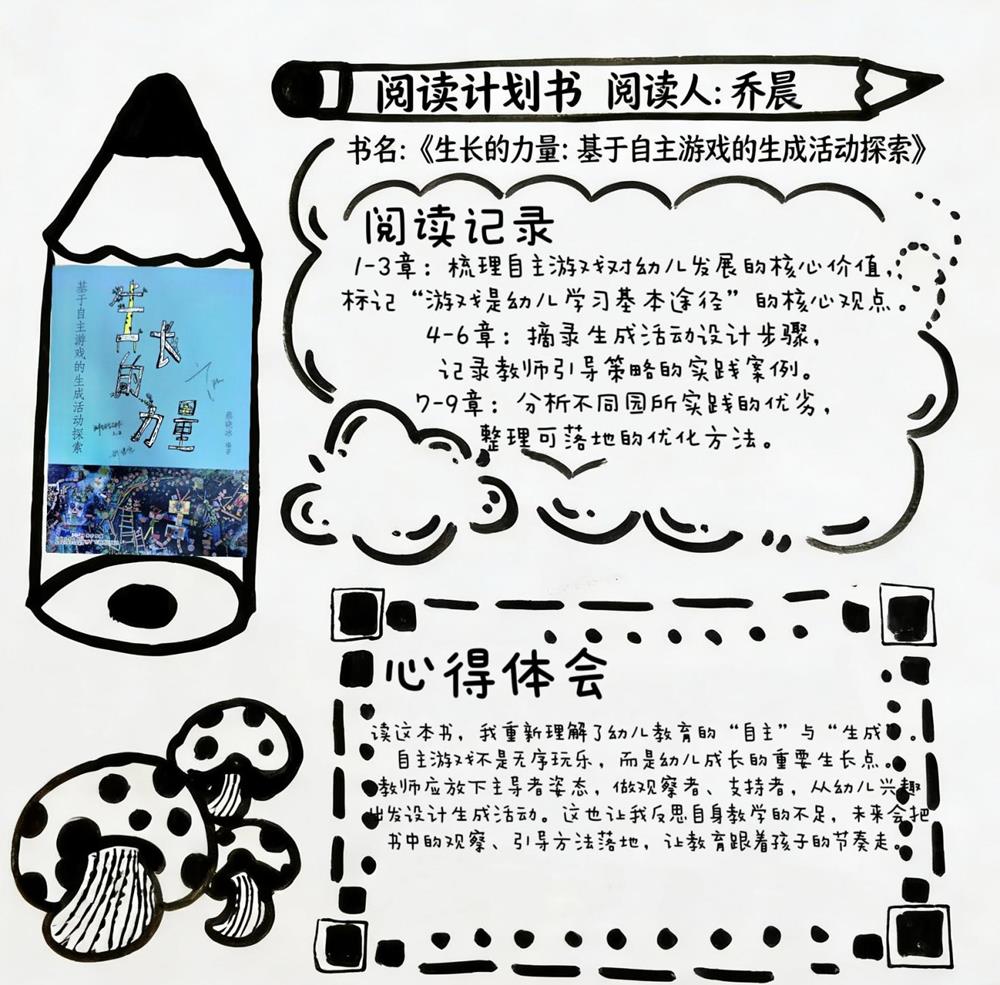 阅读计划书 阅读人: 乔晨
书名:《生长的力量: 基于自主游戏的生成活动探索》
阅读记录
1-3章: 梳理自主游戏对幼儿发展的核心价值,
标记“游戏是幼儿学习基本途径”的核心观点。
4-6章: 摘录生成活动设计步骤,
记录教师引导策略的实践案例。
7-9章: 分析不同园所实践的优劣,
整理可落地的优化方法。
基于自主游戏的生成活动探索
生长的力量
心得体会
读这本书, 我重新理解了幼儿教育的“自主”与“生成”。
自主游戏不是无序玩乐, 而是幼儿成长的重要生长点。
教师应放下主导者姿态, 做观察者、支持者, 从幼儿兴趣
出发设计生成活动。这也让我反思自身教学的不足, 未来会把
书中的观察、引导方法落地, 让教育跟着孩子的节奏走。